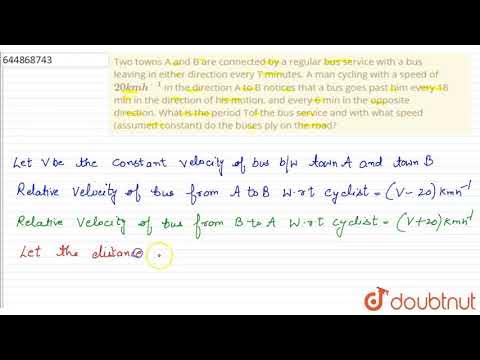 644868743
Two towns A and B are connected by a regular bus service with a bus
leaving in either direction every T minutes. A man cycling with a speed of
20kmh⁻¹ in the direction A to B notices that a bus goes past him every 18
min in the direction of his motion, and every 6 min in the opposite
direction. What is the period Tof the bus service and with what speed
(assumed constant) do the buses ply on the road?
Let V be the Constant Velocity of bus b/w town A and town B
Relative Velocity of bus from A to B W.r.t Cyclist = (V-20) kmh⁻¹
Relative Velocity of bus from B to A W.r.t Cyclist = (V+20) kmh⁻¹
Let the distance
doubtnut